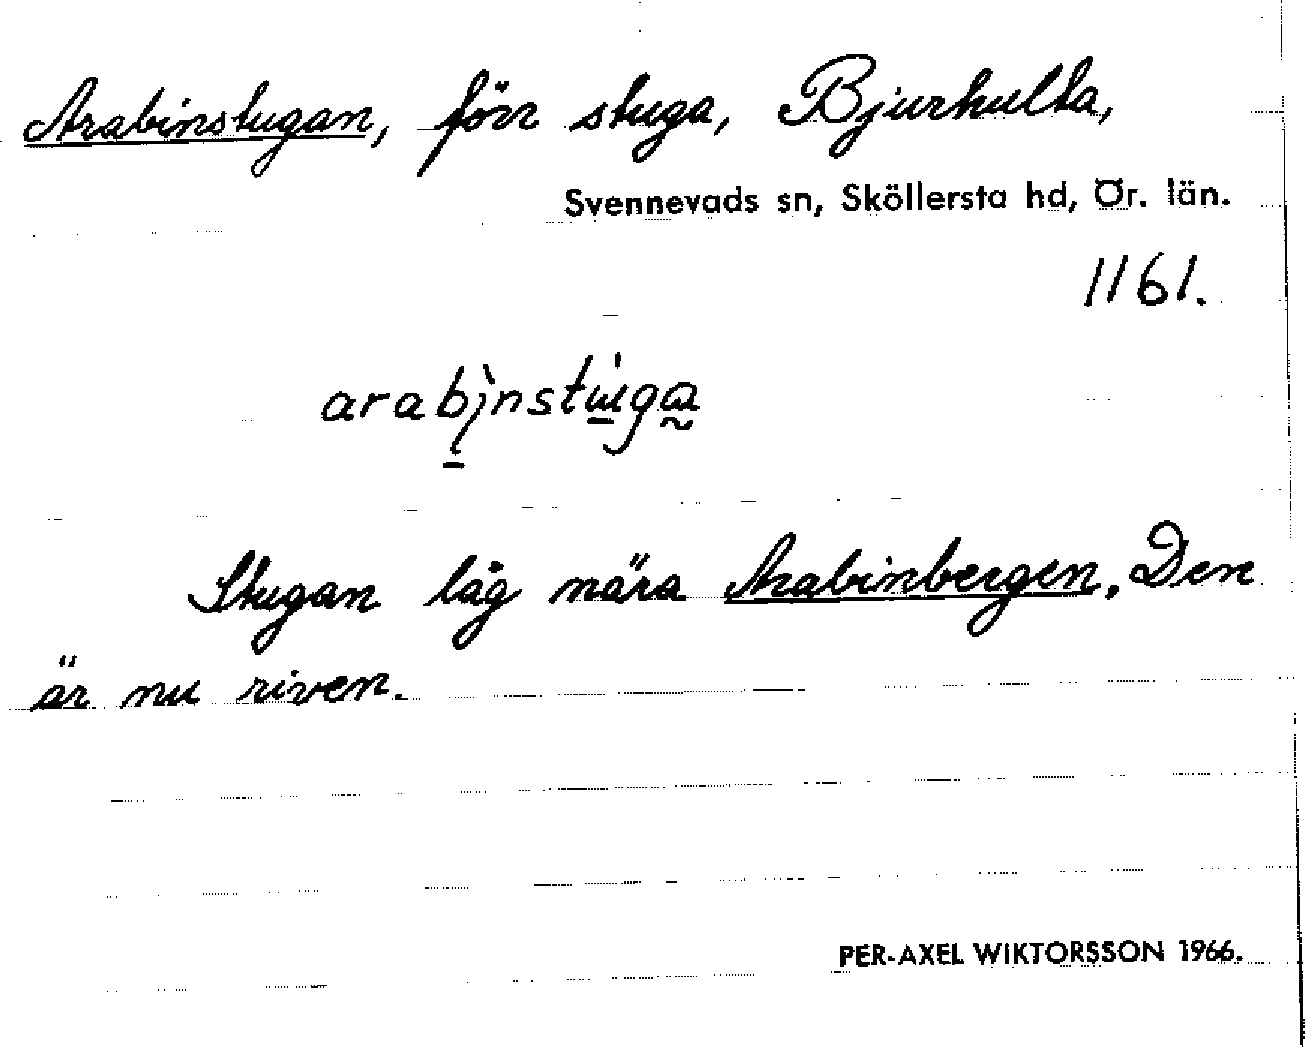 Arabinstugan, förr stuga, Bjurhulta,
Svennevads sn, Sköllersta hd, Ör. län.
1161.
arabinstuga
Stugan låg nära Arabinbergen. Den
är nu riven.
PER-AXEL WIKTORSSON 1966.